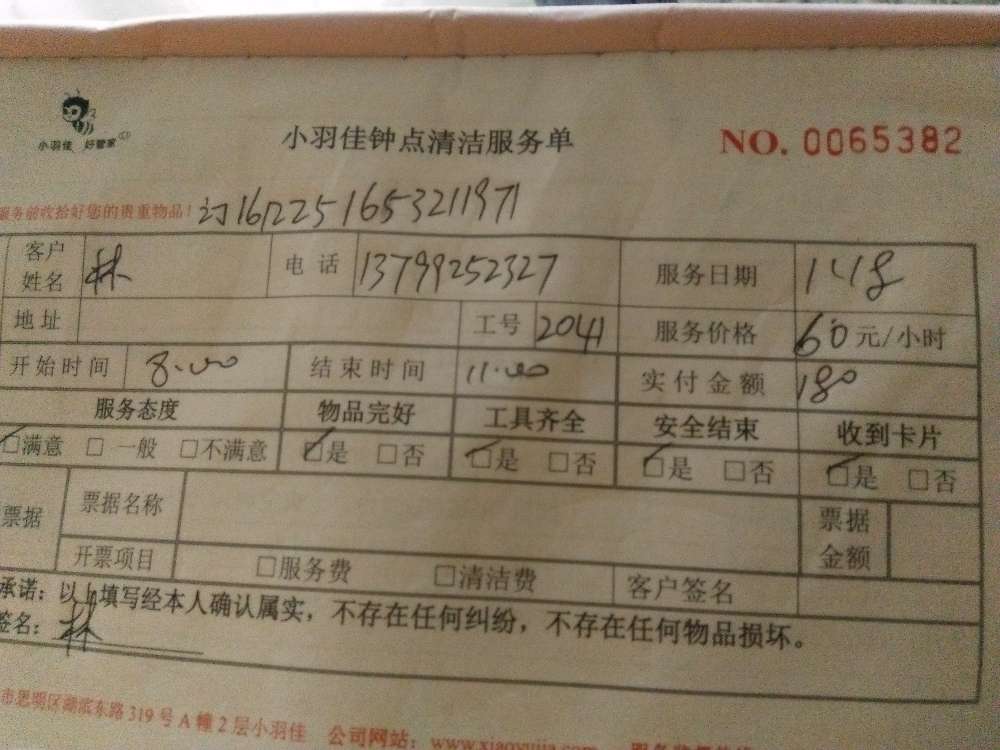 小羽佳 好管家
小羽佳钟点清洁服务单 NO. 0065382
服务前收拾好您的贵重物品! 订1612251653211971
客户姓名 林 电话 13799252327 服务日期 1.18
地址 工号 2041 服务价格 60元/小时
开始时间 8.00 结束时间 11.00 实付金额 180
服务态度 物品完好 工具齐全 安全结束 收到卡片
□满意 □一般 □不满意 □是 □否 □是 □否 □是 □否 □是 □否
票据 票据名称 票据金额
开票项目 □服务费 □清洁费 客户签名
承诺: 以上填写经本人确认属实，不存在任何纠纷，不存在任何物品损坏。
签名: 林
市思明区湖滨东路319号A幢2层小羽佳 公司网站: www.xiaoyujia.com